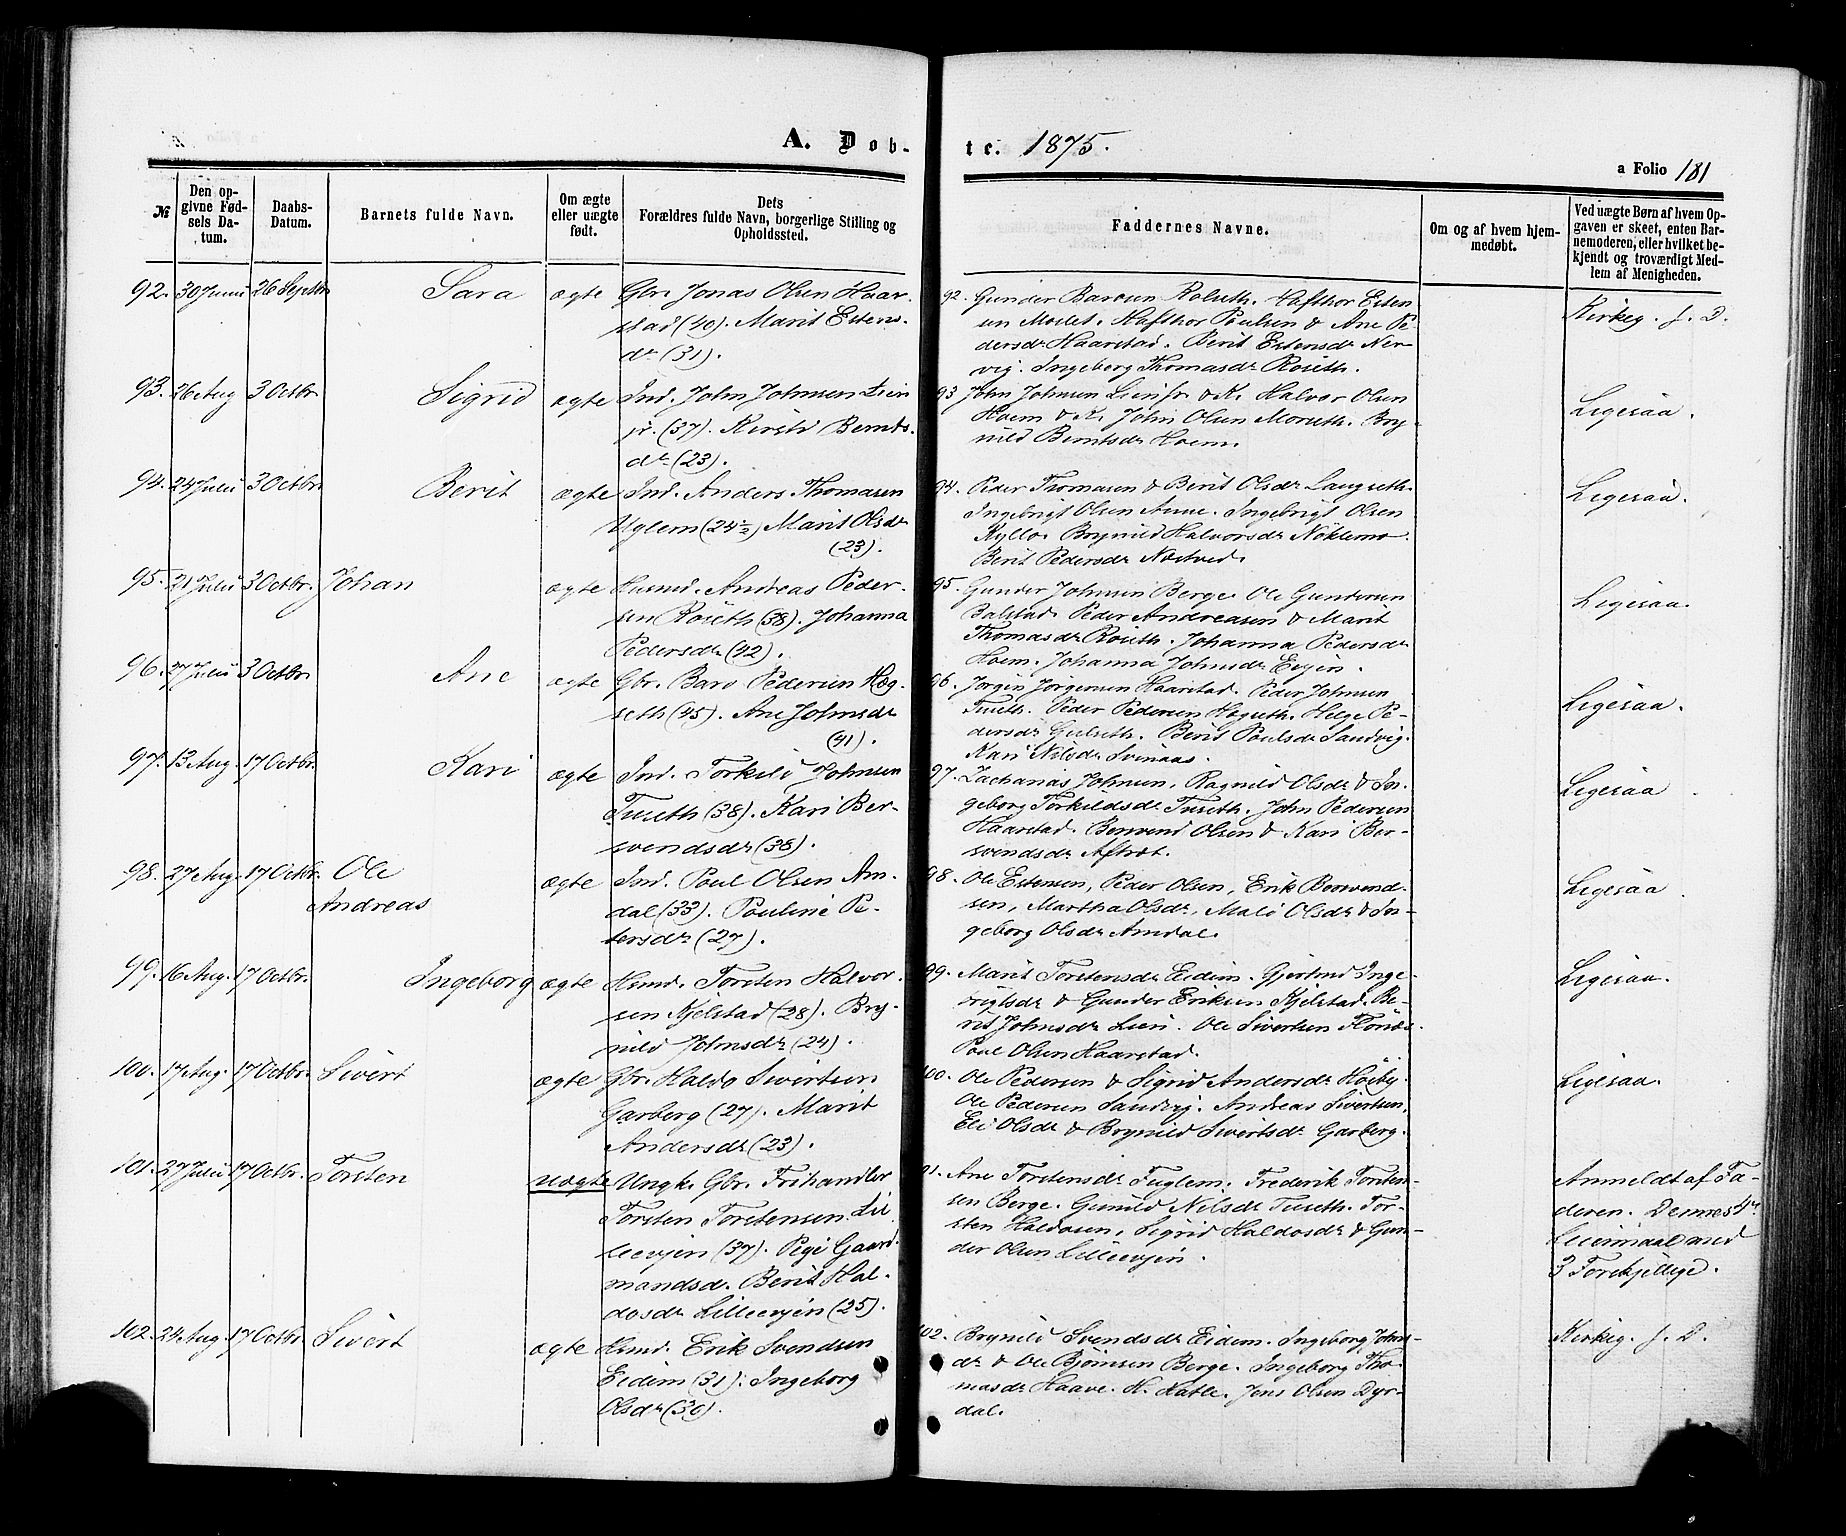 A. Døb-
te. 1875.
a Folio 181
№
Den op-
givne Fød-
sels Da-
tum.
Daabs-
Datum.
Barnets fulde Navn.
Om ægte
eller uægte
født.
Dets
Forældres fulde Navn, borgerlige Stilling og
Opholdssted.
Faddernes Navne.
Om og af hvem hjem-
medøbt.
Ved uægte Børn af hvem Op-
gaven er skeet, enten Bar-
nemoderen, eller hvilket be-
kjendt og troværdigt Med-
lem af Menigheden.
92. 30 Juni 26 Septbr Sara ægte Gbr. Jonas Olsen Haar-
stad (40). Marit Estens-
dr (31).
92. Gunder Barosen Rolseth. Hafthor Esten-
sen Moslet. Hafthor Poulsen & Ane Pe-
dersdr Haarstad. Berit Estensdr Ner-
vig. Ingeborg Thomasdr Röseth.
Kirkeg. f. D.
93. 26 Aug 3 Octbr Sigrid ægte Ind. John Johnsen Lien
jr. (37). Kirsti Bernts-
dr (23).
93 John Johnsen Lien sr & K. Halvor Olsen
Hoem & K. John Olsen Moruseth. Bry-
nild Berntsdr Hoem.
Ligesaa.
94. 24 Julii 3 Octbr Berit ægte Ind. Anders Thomasen
Uglem (24½) Marit Olsdr
(23).
94. Peder Thomasen & Berit Olsdr Langseth.
Ingebrigt Olsen Aune. Ingebrigt Olsen
Kyllo. Brynild Halvorsdr Nöklemo.
Berit Pedersdr Næstved.
Ligesaa.
95. 21 Julii 3 Octbr. Johan ægte Husmd. Andreas Peder-
sen Röseth (38). Johanna
Pedersdr (42).
95. Gunder Johnsen Berge. Ole Gundersen
Balstad. Peder Andreasen & Marit
Thomasdr Röseth. Johanna Pedersdr
Hoem. Johanna Johnsdr Evjen.
Ligesaa.
96. 27 Julii 3 Octbr Ane ægte Gbr. Baro Pedersen Høg-
seth (45). Ane Johnsdr
(41).
96. Jörgen Jörgensen Haarstad. Peder Johnsen
Tuseth. Peder Pedersen Høgseth. Helge Pe-
dersdr Gulseth. Berit Poulsdr Sandvig.
Kari Nilsdr Svinaas.
Ligesaa.
97. 13 Aug. 17 Octbr. Kari ægte Ind. Torkild Johnsen
Tuseth (38). Kari Ber-
svendsdr (38).
97. Zacharias Johnsen, Ragnild Olsdr & In-
geborg Torkildsdr Tuseth. John Pedersen
Haarstad. Bersvend Olsen & Kari Ber-
svendsdr Aftret.
Ligesaa
98. 27 Aug. 17 Octbr. Ole
Andreas ægte Ind. Poul Olsen Am-
dal (33). Pauline Pe-
tersdr (27).
98. Ole Estensen, Peder Olsen, Erik Bersvend-
sen, Martha Olsdr, Malo Olsdr & In-
geborg Olsdr Amdal.
Ligesaa
99. 16 Aug. 17 Octbr. Ingeborg ægte Hsmd. Torsten Halvor-
sen Kjelstad (28). Bry-
nild Johnsdr (24).
99. Marit Torstensdr Eidem. Gjertrud Inge-
brigtsdr & Gunder Eriksen Kjelstad. Be-
rit Johnsdr Lien. Ole Sivertsen
Poul Olsen Haarstad.
Ligesaa.
100. 17 Aug. 17 Octbr. Sivert ægte Gbr. Haldo Sivertsen
Garberg (27). Marit
Andersdr (23).
100. Ole Pedersen & Sigrid Andersdr Höiby.
Ole Pedersen Sandvig. Andreas Sivertsen,
Eli Olsdr & Brynild Sivertsdr Garberg.
Ligesaa.
101. 27 Julii 17 Octbr. Torsten uægte Ungk. Gbr. Frihandler
Torsten Torstensen Lil-
leevjen (37). Pige Gaard-
mandsd. Berit Hal-
dosdr Lilleevjen (25).
Ane Torstensdr Fuglem. Frederik Torsten-
sen Berge. Gunild Nilsdr Tuseth. Tor-
sten Haldosen, Sigrid Haldosdr & Gun-
der Olsen Lilleevjen.
Anmeldt af Fa-
deren. Dennes 4de
Leiermaal med
3 Forskjellige.
102. 24 Aug. 17 Octbr. Sivert ægte Hsmd. Erik Svendsen
Eidem (31). Ingeborg
Olsdr (30).
102. Brynild Svendsdr Eidem. Ingeborg Johns-
dr & Ole Björnsen Berge. Ingeborg Tho-
masdr Haave. H. Kalle. Jens Olsen Dyr-
dal.
Kirkeg. f. D.